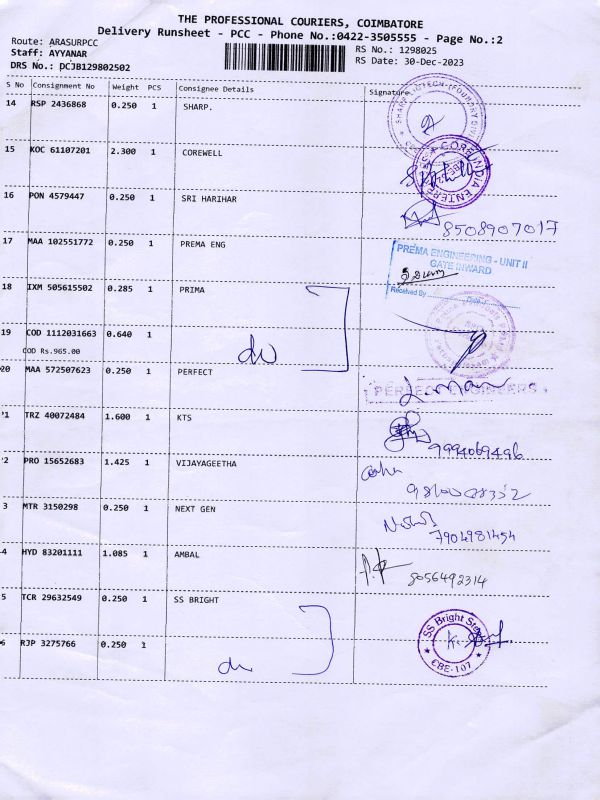 THE PROFESSIONAL COURIERS, COIMBATORE
Delivery Runsheet - PCC - Phone No.:0422-3505555 - Page No.:2
Route: ARASURPCC
Staff: AYYANAR
DRS No.: DCJB129802502
RS No.: 1298025
RS Date: 30-Dec-2023
S No Consignment No Weight PCS Consignee Details Signature
14 RSP 2436868 0.250 1 SHARP.
15 KOC 61107201 2.300 1 COREWELL
16 PON 4579447 0.250 1 SRI HARIHAR
8508907017
17 MAA 102551772 0.250 1 PREMA ENG
PREMA ENGINEERING - UNIT II
GATE INWARD
Received By
Date
18 IXM 505615502 0.285 1 PRIMA
19 COD 1112031663 0.640 1
COD Rs.965.00
20 MAA 572507623 0.250 1 PERFECT
PERFECT ENGINEERS
21 TRZ 40072484 1.600 1 KTS
9994069496
2 PRO 15652683 1.425 1 VIJAYAGEETHA
3 MTR 3150298 0.250 1 NEXT GEN
7904981454
4 HYD 83201111 1.085 1 AMBAL
8056492314
5 TCR 29632549 0.250 1 SS BRIGHT
6 RJP 3275766 0.250 1
SS Bright Steel
CBE-107